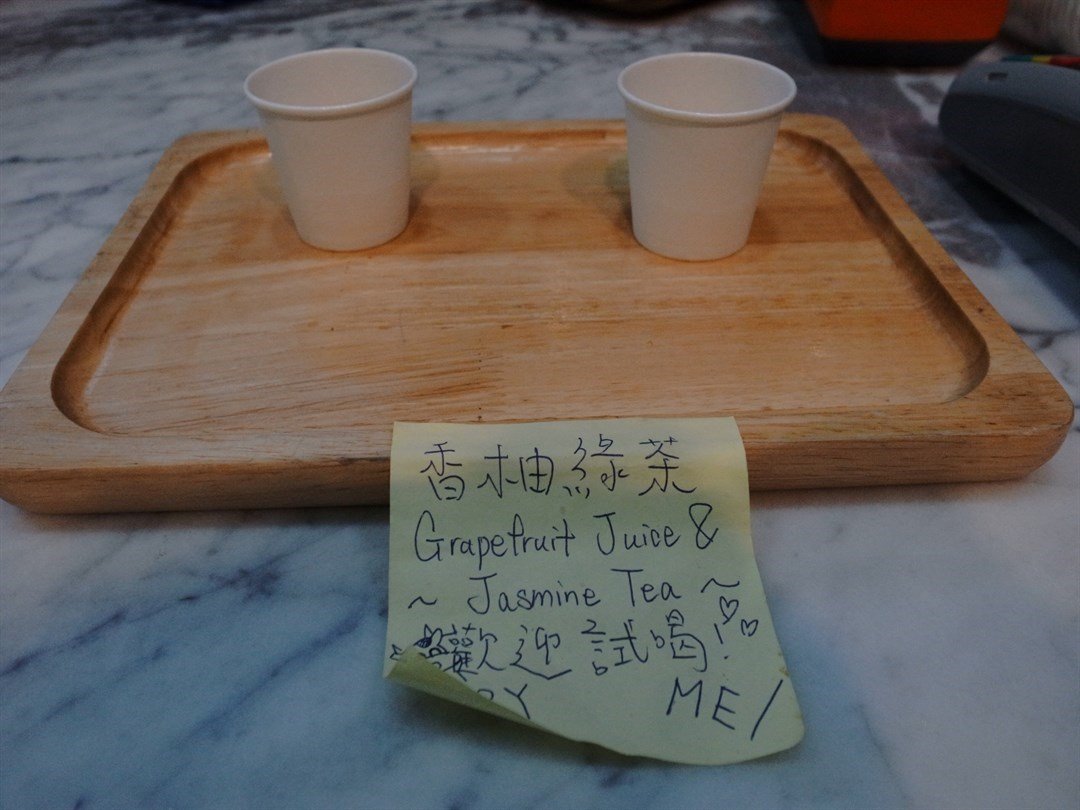 香柚綠茶
Grapefruit Juice &
~ Jasmine Tea ~
歡迎試喝!
RY ME!